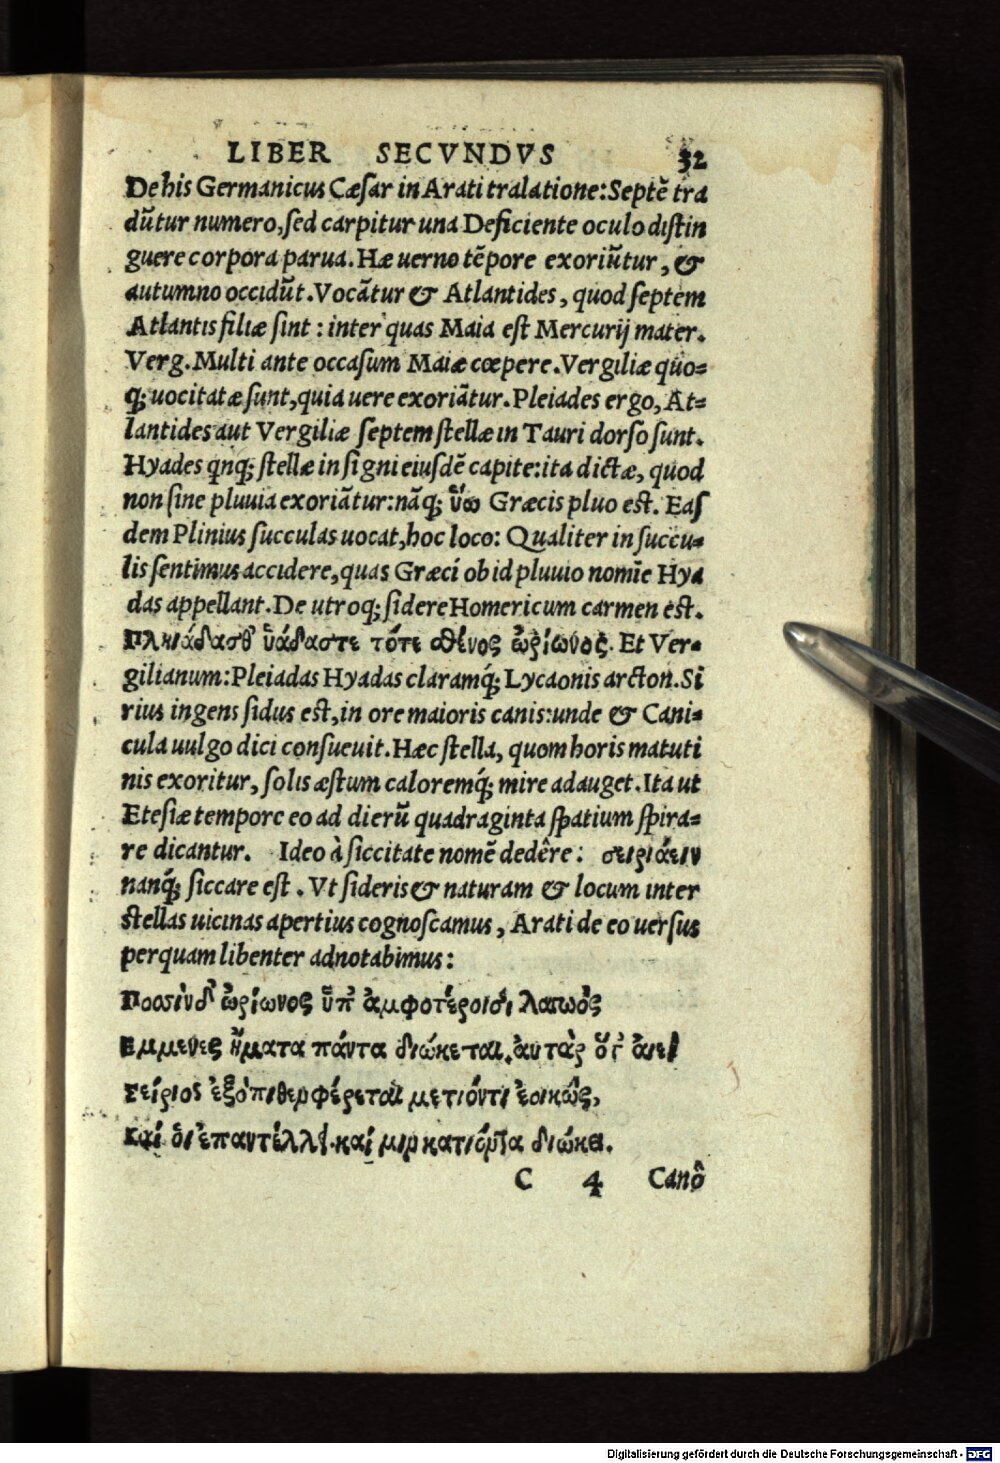 LIBER SECVNDVS 32
De his Germanicus Cæsar in Arati tralatione: Septē tra
dūtur numero, sed carpitur una Deficiente oculo distin
guere corpora parua. Hæ uerno tēpore exoriūtur, &
autumno occidūt. Vocātur & Atlantides, quod septem
Atlantis filiæ sint: inter quas Maia est Mercurij mater.
Verg. Multi ante occasum Maiæ cœpere. Vergiliæ quo=
q; uocitatæ sunt, quia uere exoriātur. Pleiades ergo, At=
lantides aut Vergiliæ septem stellæ in Tauri dorso sunt.
Hyades qnq; stellæ in signi eiusdē capite: ita dictæ, quod
non sine pluuia exoriātur: nāq; ὕω Græcis pluo est. Eas
dem Plinius succulas uocat, hoc loco: Qualiter in succu=
lis sentimus accidere, quas Græci ob id pluuio nomīe Hya
das appellant. De utroq; sidere Homericum carmen est.
Πληιάδασθ ὑάδαστε τότε σθένος ὠρίωνός. Et Ver=
gilianum: Pleiadas Hyadas claramq́; Lycaonis arcton. Si
rius ingens sidus est, in ore maioris canis: unde & Cani=
cula uulgo dici consueuit. Hæc stella, quom horis matuti
nis exoritur, solis æstum caloremq́; mire adauget. Ita ut
Etesiæ tempore eo ad dierū quadraginta spatium spira=
re dicantur. Ideo à siccitate nomē dedêre: σειριάειν
nanq́; siccare est. Vt sideris & naturam & locum inter
stellas uicinas apertius cognoscamus, Arati de eo uersus
perquam libenter adnotabimus:
Ποσσὶν δ' ὠρίωνος ὑπ' ἀμφοτέροισι λαγωός
Εμμενὲς ἤματα πάντα διώκεται. αυτὰρ ὅγ' ἀιεὶ
Σείριος ἐξόπιθεν φέρεται μετιόντι ἐοικὼς,
Καί ὁι ἐπαντέλλει. καί μιν κατιόντα διώκει.
C 4 Canō